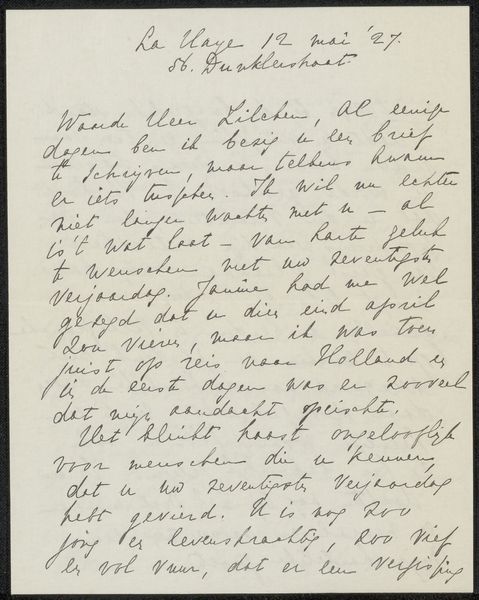 La Haye 12 mai '27.
56. Dunklerstraat.
Waarde Heer Zilcken, Al eenige
dagen ben ik bezig u een brief
te schrijven, maar telkens kwam
er iets tusschen. Ik wil nu echter
niet langer wachten met u – al
is 't wat laat – van harte geluk
te wenschen met uw zeventigste
verjaardag. Janine had me wel
gezegd dat u dien eind april
zou vieren, maar ik was toen
juist op reis naar Holland en
in de eerste dagen was er zooveel
dat mijn aandacht opeischte.
Het klinkt haast ongelooflijk
voor menschen die u kennen,
dat u uw zeventigste verjaardag
hebt gevierd. U is nog zoo
jong en levenskrachtig, zoo vief
en vol vuur, dat er een vergissing